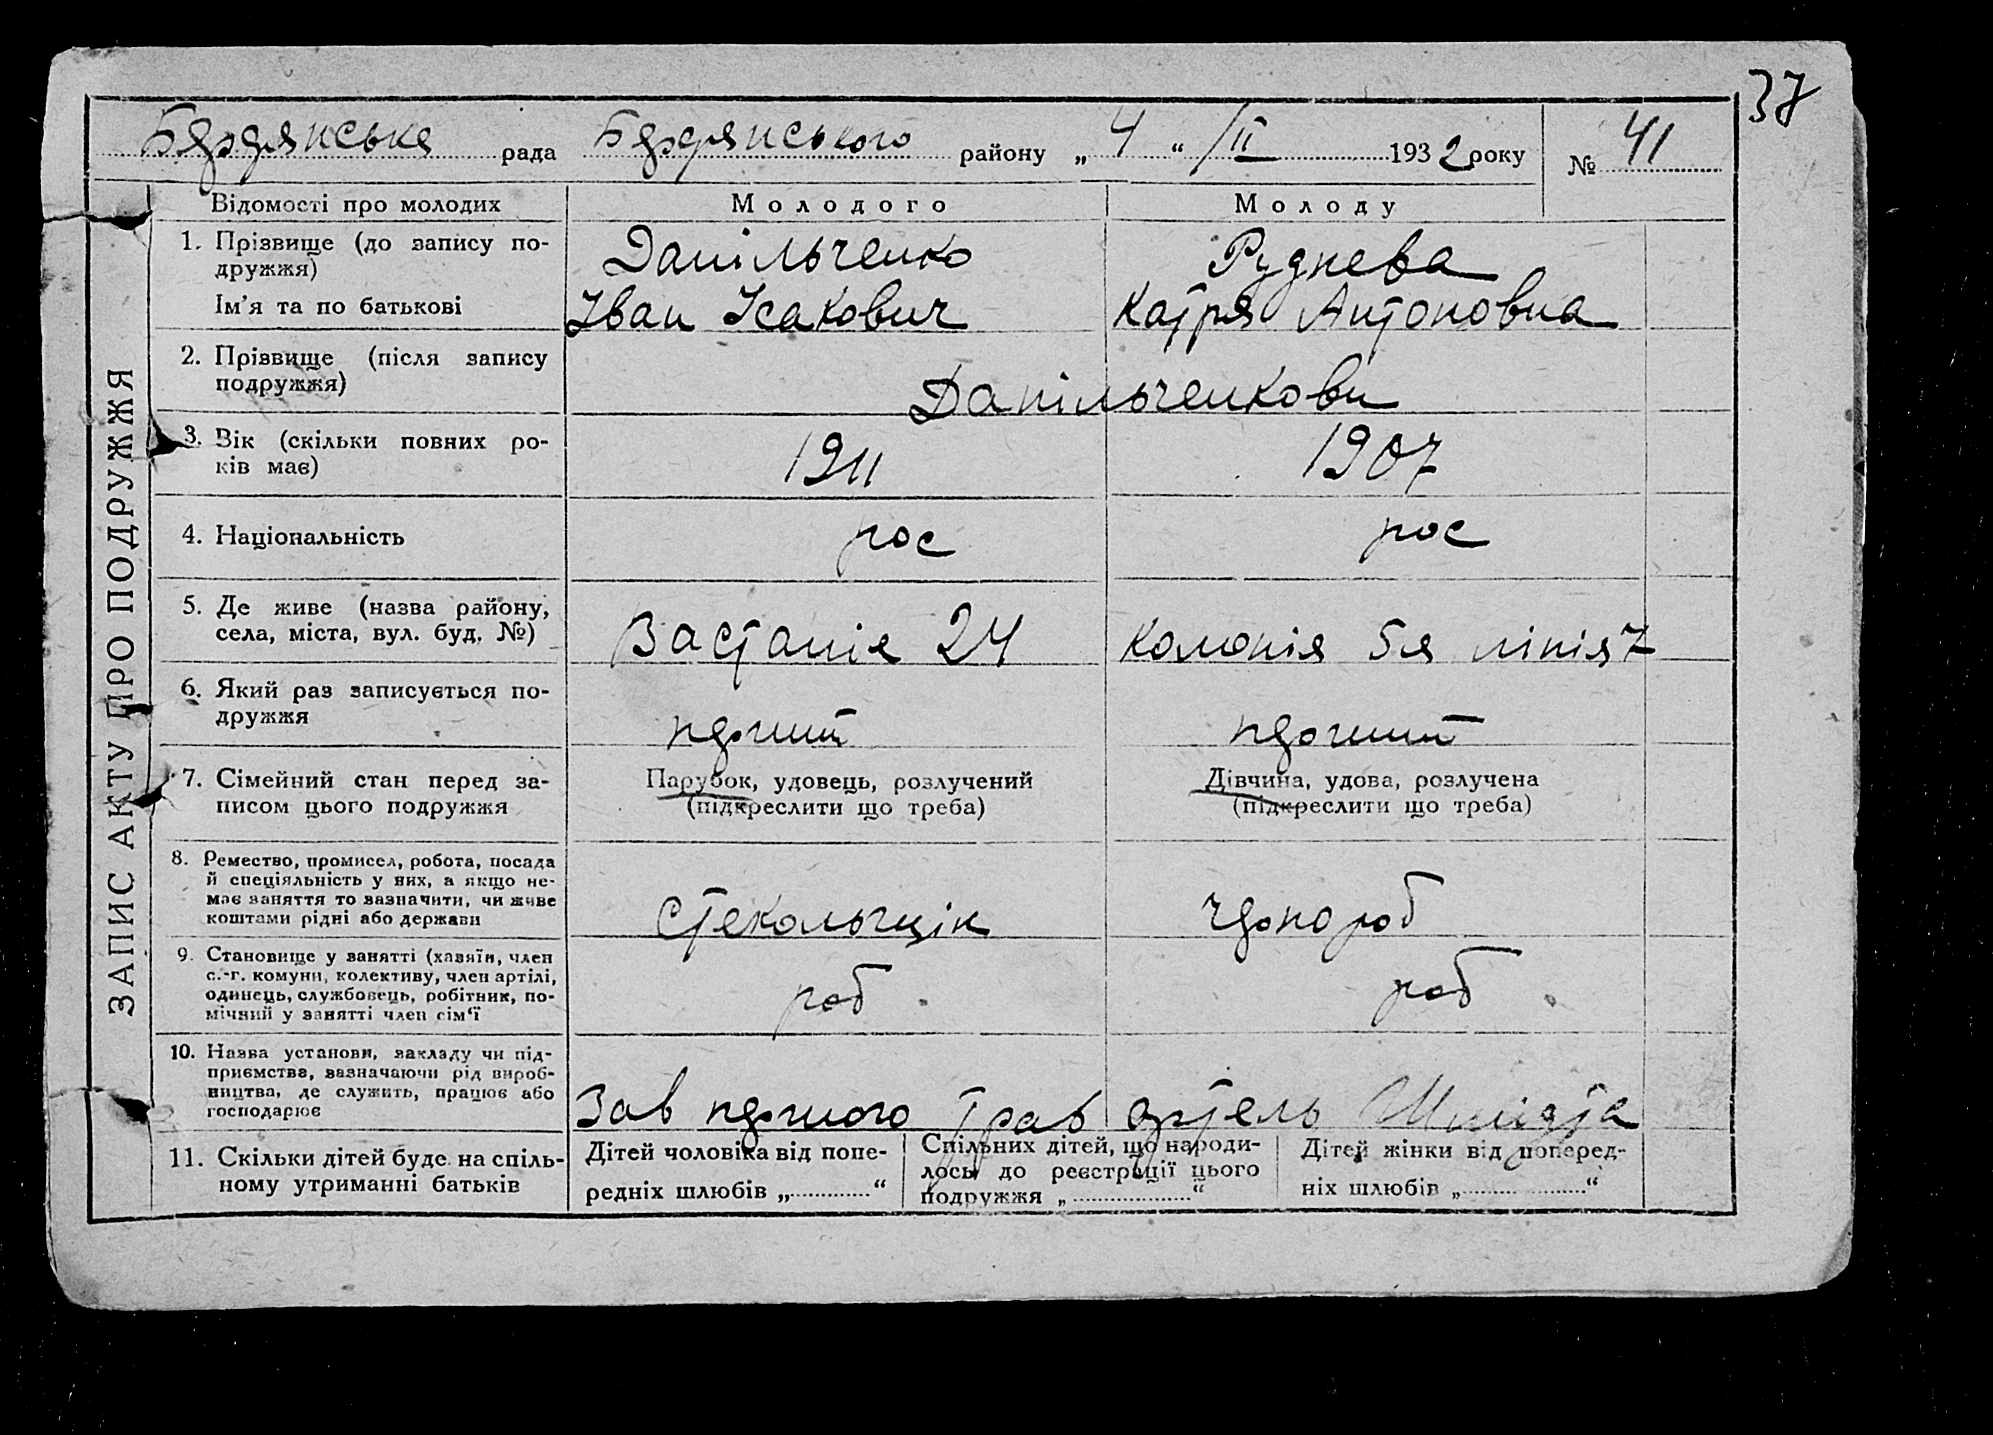 37
Бердянська рада Бердянського району „4“ /II 1932 року № 41
ЗАПИС АКТУ ПРО ПОДРУЖЖЯ
Відомості про молодих Молодого Молоду
1. Прізвище (до запису по-
дружжя)
Данільченко Руднева
Ім'я та по батькові Іван Ісакович Катря Антоновна
2. Прізвище (після запису
подружжя)
Данільченкови
3. Вік (скільки повних ро-
ків має)
1911 1907
4. Національність рос рос
5. Де живе (назва району,
села, міста, вул. буд. №)
Вастаніє 24 Колонія 5я лінія 7
6. Який раз записується по-
дружжя
перший перший
7. Сімейний стан перед за-
писом цього подружжя
Парубок, удовець, розлучений
(підкреслити що треба)
Дівчина, удова, розлучена
(підкреслити що треба)
8. Ремество, промисел, робота, посада
й спеціяльність у них, а якщо не-
має заняття то зазначити, чи живе
коштами рідні або держави
стекольщік чорнороб
9. Становище у занятті (хазяїн, член
с.-г. комуни, колективу, член артілі,
одинець, службовець, робітник, по-
мічний у занятті член сім'ї
роб роб
10. Назва установи, закладу чи під-
приємства, зазначаючи рід вироб-
ництва, де служить, працює або
господарює
Зав першого трав артель Шмідта
11. Скільки дітей буде на спіль-
ному утриманні батьків
Дітей чоловіка від попе-
редніх шлюбів „ “
Спільних дітей, що народи-
лось до реєстрації цього
подружжя „ “
Дітей жінки від поперед-
ніх шлюбів „ “